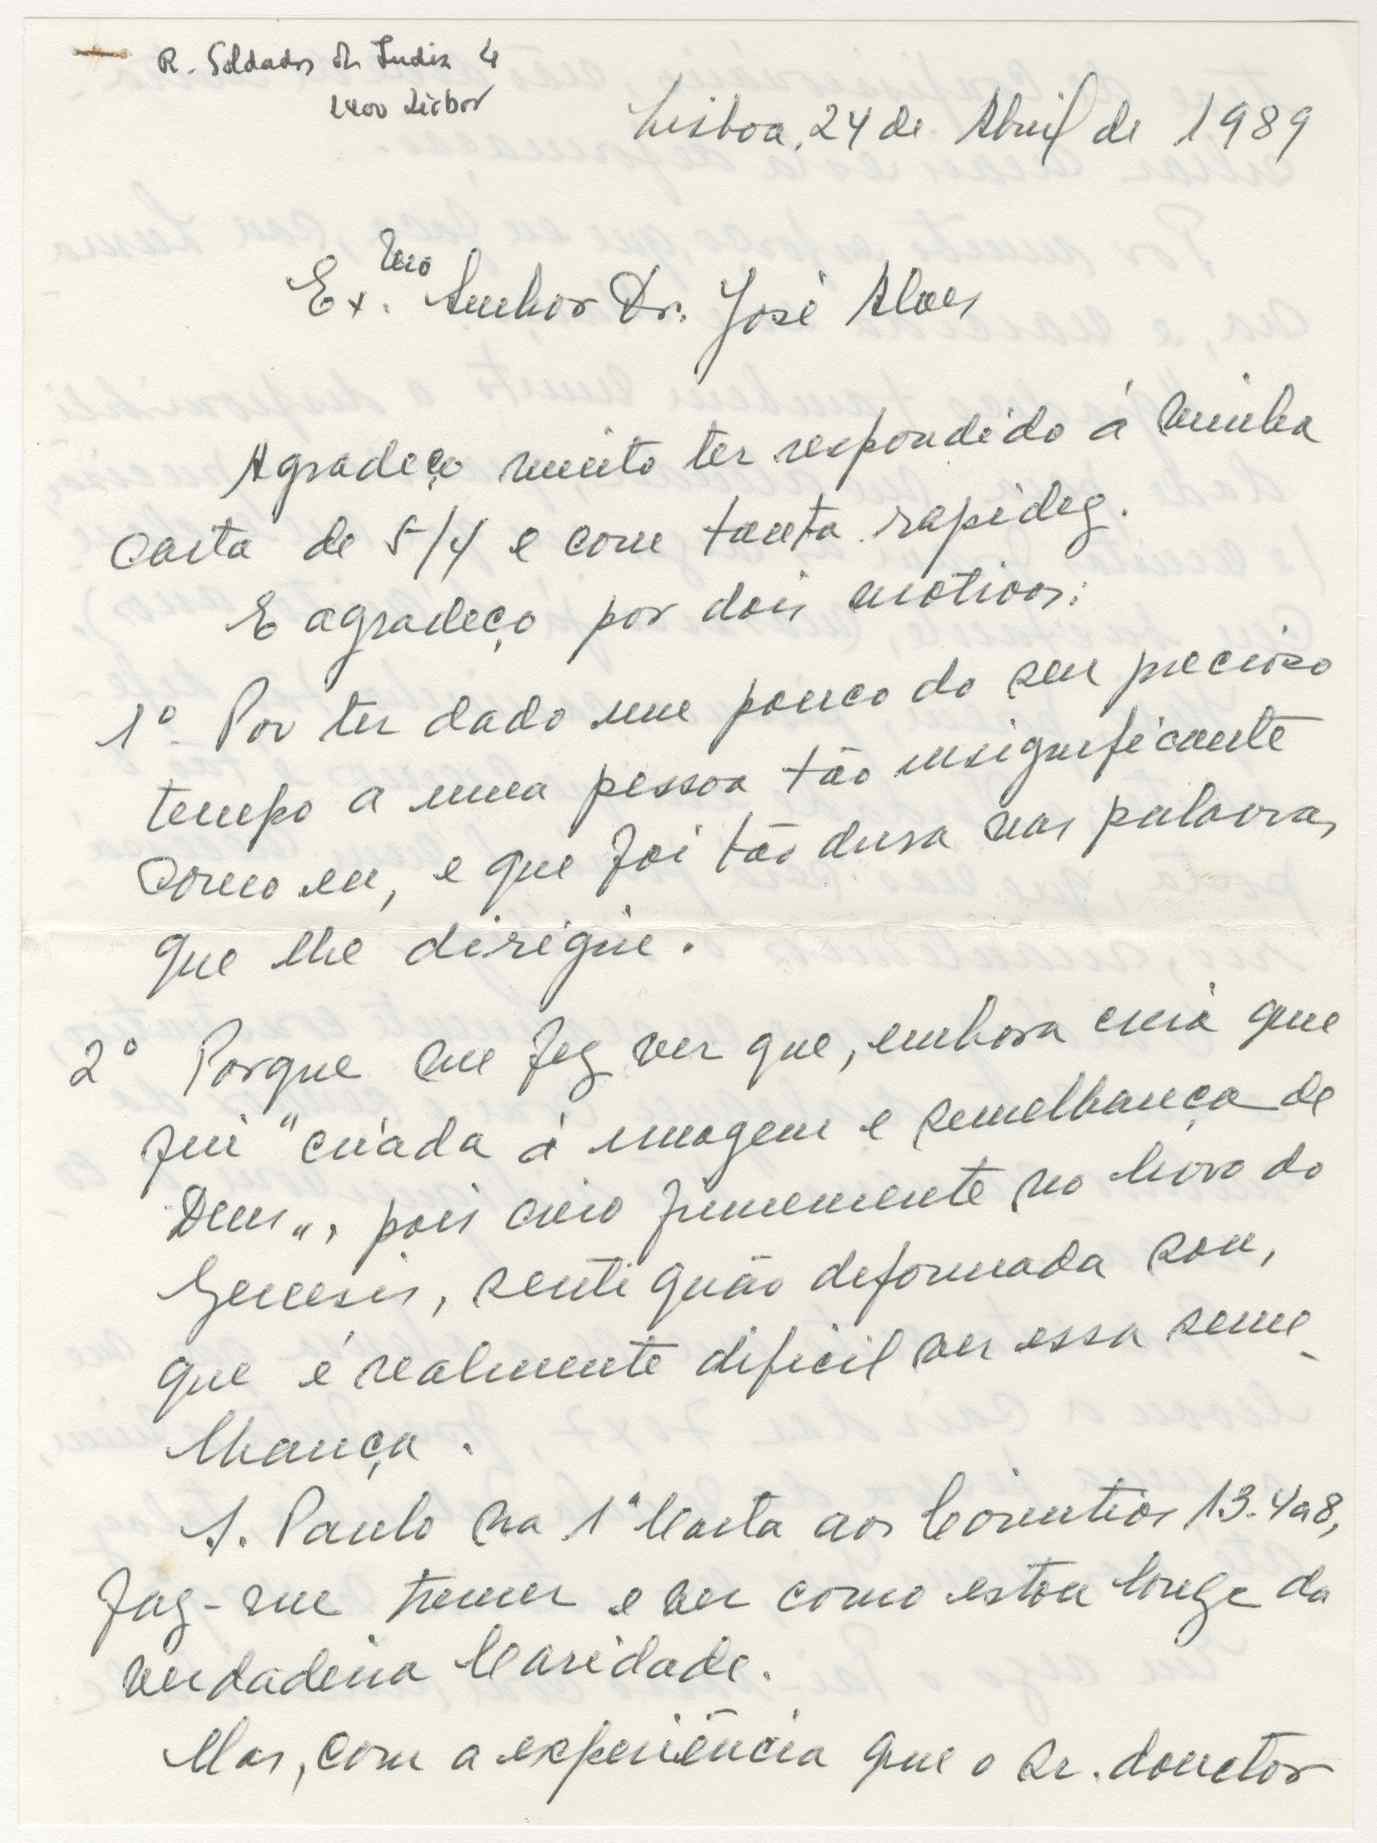 R. Soldados da India 4
1400 Lisboa
Lisboa, 24 de Abril de 1989
Ex.mo Senhor Dr. José Alves
Agradeço muito ter respondido á minha
carta de 5/4 e com tanta rapidez.
E agradeço por dois motivos:
1º Por ter dado um pouco do seu precioso
tempo a uma pessoa tão insignificante
como eu, e que foi tão dura nas palavras
que lhe dirigiu.
2º Porque me fez ver que, embora creia que
fui "criada á imagem e semelhança de
Deus", pois creio firmemente no livro do
Genesis, senti quão deformada sou,
que é realmente dificil ver essa seme-
lhança.
S. Paulo na 1ª Carta aos Corintios 13.4a8,
faz-me tremer e ver como estou longe da
verdadeira Caridade.
Mas, com a experiência que o Sr. douctor